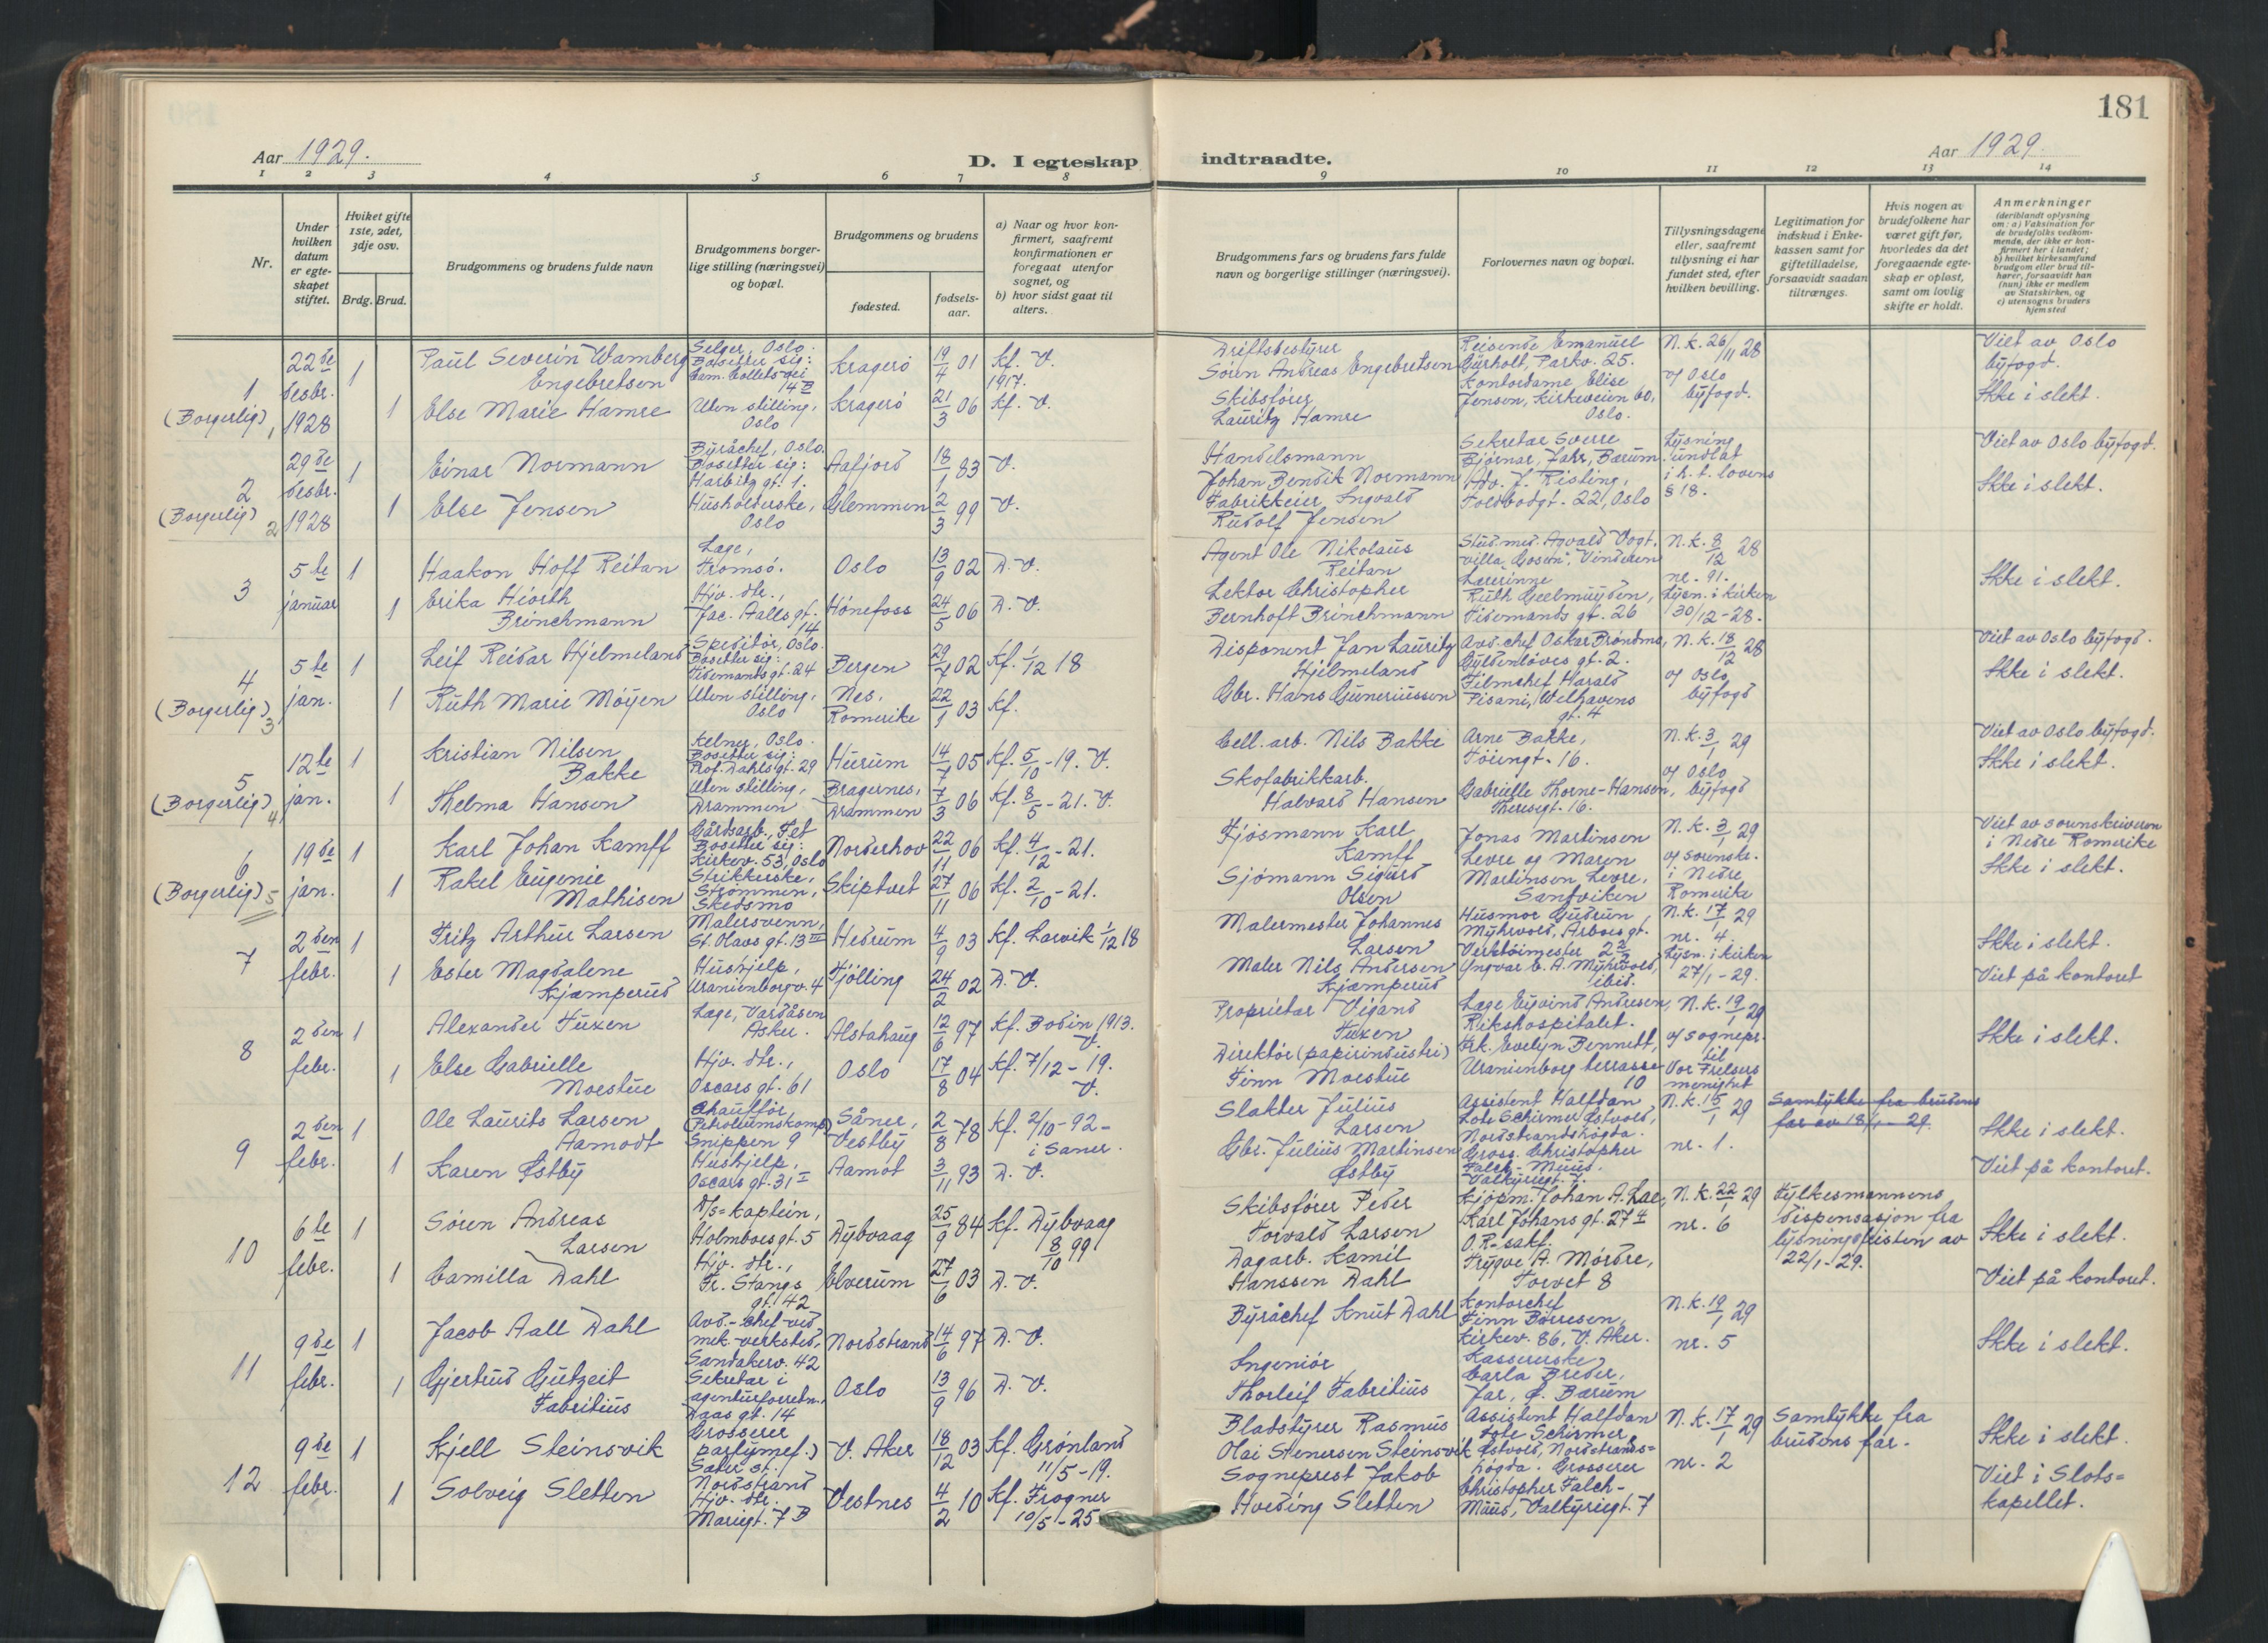 181
Aar 1929.
D. I egteskap indtraadte.
Aar 1929.
1 2 3 4 5 6 7 8 9 10 11 12 13 14
Nr.
Under hvilken datum er egteskapet stiftet.
Hviket gifte 1ste, 2det, 3dje osv.
Brdg. Brud.
Brudgommens og brudens fulde navn
Brudgommens borgerlige stilling (næringsvei) og bopæl.
Brudgommens og brudens
fødested.
fødselsaar.
a) Naar og hvor konfirmert, saafremt konfirmationen er foregaat utenfor sognet, og
b) hvor sidst gaat til alters.
Brudgommens fars og brudens fars fulde navn og borgerlige stillinger (næringsvei).
Forlovernes navn og bopæl.
Tillysningsdagene eller, saafremt tillysning ei har fundet sted, efter hvilken bevilling.
Legitimation for indskud i Enkekassen samt for giftetilladelse, forsaavidt saadan tiltrænges.
Hvis nogen av brudefolkene har været gift før, hvorledes da det foregaaende egteskap er opløst, samt om lovlig skifte er holdt.
Anmerkninger (deriblandt oplysning om: a) Vaksination for de brudefolks vedkommende, der ikke er konfirmert her i landet; b) hvilket kirkesamfund brudgom eller brud tilhører, forsaavidt han (hun) ikke er medlem av Statskirken, og c) utensogns bruders hjemsted
1 (Borgerlig) 1
22de desbr. 1928
1 Paul Severin Wamberg Engebretsen
Selger, Oslo. Bosetter sig: Cam. Colletts vei 14 II
Kragerø 19/4 01 Kf. V. 1917.
Driftsbestyrer Søren Andreas Engebretsen
Reisende Emanuel Gürholt, Parkv. 25.
N.k. 26/11 28
Viet av Oslo byfogd.
1 Else Marie Hamre
Uten stilling, Oslo
Kragerø 21/3 06 Kf. V.
Skibsfører Lauritz Hamre
Kontordame Elise Jensen, Kirkeveien 60, Oslo.
av Oslo byfogd.
Ikke i slekt.
2 (Borgerlig) 2
29de desbr. 1928
1 Einar Normann
Byråchef, Oslo. Bosetter sig: Harbitz gt. 1.
Aafjord 18/1 83 V.
Handelsmann Johan Bendik Normann
Sekretær Sverre Bjørnar, Jahr, Bærum.
Lysning undlat i h. t. lovens § 18.
Viet av Oslo byfogd.
1 Else Jensen
Husholderske, Oslo
Glemmen 2/3 99 V.
Fabrikkeier Ingvald Rudolf Jensen
Adv. J. Risting, Toldbodgt. 22, Oslo
Ikke i slekt.
3
5te januar
1 Haakon Hoff Reitan
Læge, Tromsø.
Oslo 13/9 02 D. V.
Agent Ole Nikolaus Reitan
Stud. med. Agvald Vogt, villa "Gosen", Vinderen
N.k. 8/12 28 nr. 91.
1 Erika Hiorth Brinchmann
Hjv. dtr., Jac. Aalls gt. 14
Hønefoss 24/5 06 D. V.
Lektor Christopher Bernhoft Brinchmann
Lærerinne Ruth Geelmuyden, Tidemands gt. 26
Lysn. i kirken 30/12-28.
Ikke i slekt.
4 (Borgerlig) 3
5te jan.
1 Leif Reidar Hjelmeland
Speditør, Oslo. Bosetter sig: Tidemands gt. 24
Bergen 29/7 02 Kf. 1/12 18
Disponent Jan Lauritz Hjelmeland
Avd. chef Oskar Brøndmo, Gyldenløves gt. 2.
N.k. 18/12 28
Viet av Oslo byfogd.
1 Ruth Marie Møyen
Uten stilling, Oslo
Nes, Romerike 22/1 03 Kf.
Gbr. Hans Guneriussen
Filmchef Harald Pisani, Welhavens gt. 4
av Oslo byfogd
Ikke i slekt.
5 (Borgerlig) 4
12te jan.
1 Kristian Nilsen Bakke
Kelner, Oslo. Bosetter sig: Prof. Dahls gt. 29
Hurum 14/7 05 Kf. 5/10-19. V.
Cell. arb. Nils Bakke
Arne Bakke, Tøiengt. 16.
N.k. 3/1 29
Viet av Oslo byfogd.
1 Thelma Hansen
Uten stilling, Drammen
Bragernes, Drammen 7/3 06 Kf. 8/5-21. V.
Skofabrikkarb. Halvard Hansen
Gabrielle Thorne-Hansen, Theresgt. 16.
av Oslo byfogd
Ikke i slekt.
6 (Borgerlig) 5
19de jan.
1 Karl Johan Kamff
Gårdsarb., Fet Bosetter sig: Kirkev. 53, Oslo
Norderhov 22/11 06 Kf. 4/12-21.
Fjøsmann Karl Kamff
Jonas Martinsen Levre og Maren Martinsen Levre, Sandviken
N.k. 3/1 29 av sorenskr. i Nedre Romerike
Viet av sorenskriveren i Nedre Romerike
1 Rakel Eugenie Mathisen
Strikkerske, Strømmen, Skedsmo
Skiptvet 27/11 06 Kf. 2/10-21.
Sjømann Sigurd Olsen
Ikke i slekt.
7
2den febr.
1 Fritz Arthur Larsen
Malersvenn, St. Olavs gt. 13 III
Hedrum 4/9 03 Kf. Larvik 1/12 18
Malermester Johannes Larsen
Husmor Gudrun Myhrvold, Arboes gt.
N.k. 17/1 29 nr. 4.
Ikke i slekt.
1 Ester Magdalene Kjæmperud
Hushjelp, Uranienborgv. 4
Tjølling 24/2 02 D. V.
Maler Nils Andersen Kjæmperud
Verktøimester Yngvar C. A. Myhrvold, ibid.
Lysn. i kirken 27/1-29.
Viet på kontoret
8
2den febr.
1 Alexander Tuxen
Læge, Vardåsen Asker.
Alstahaug 12/6 97 Kf. Bodin 1913. V.
Proprietær Vigand Tuxen
Læge Eyvind Andresen, Rikshospitalet.
N.k. 19/1 29
1 Else Gabrielle Moestue
Hjv. dtr., Oscars gt. 61
Oslo 17/8 04 Kf. 7/12-19. V.
Direktør (papirindustri) Finn Moestue
Frk. Evelyn Bennett, Uranienborg terrasse 10
av sognepr. til Vor Frelsers menighet
Ikke i slekt.
9
2den febr.
1 Ole Laurits Larsen Aamodt
Chauffør (Petroleumskomp.) Snippen 9
Såner, Vestby 2/8 78 Kf. 2/10-92- i Saner.
Slakter Julius Larsen
Assistent Halfdan Lote Schirmer Østvold, Nordstrandshøgda.
N.k. 15/1 29 nr. 1.
Samtykke fra brudens far av 18/1-29.
Ikke i slekt.
1 Karen Østby
Hushjelp, Oscars gt. 31 I
Aamot 3/11 93 D. V.
Gbr. Julius Martinsen Østby
Gross. Christopher Falch-Muus, Valkyriegt. 7.
Viet på kontoret.
10
6te febr.
1 Søren Andreas Larsen
D/s=kaptein, Holmboes gt. 5
Dybvaag 25/9 84 Kf. Dybvaag 8/10 99
Skibsfører Peder Torvald Larsen
Kjøpm. Johan A. Lae, Karl Johans gt. 27 II
N.k. 22/1 29 nr. 6
Fylkesmannens dispensasjon fra lysningsfristen av 22/1-29.
Ikke i slekt.
1 Camilla Dahl
Hjv. dtr., Fr. Stangs gt. 42
Elverum 27/6 03 D. V.
Dagarb. Kamil Hanssen Dahl
O.R-sakf. Trygve A. Mørdre, Torvet 8
Viet på kontoret.
11
9de febr.
1 Jacob Aall Dahl
Avd.-chef ved mek. verksted, Sandakerv. 42
Nordstrand 14/6 97 D. V.
Byråchef Knut Dahl
Kontorchef Finn Børresen, Kirkev. 86, V. Aker.
N.k. 19/1 29 nr. 5
Ikke i slekt.
1 Gjertrud Gutzeit Fabritius
Sekretær i agenturforretn., Daas gt. 14
Oslo 13/9 96 D. V.
Ingeniør Thorleif Fabritius
Kassererske Carla Breder, Jar, Ø. Bærum
12
9de febr.
1 Kjell Steinsvik
Grosserer parfymef.) Sæter st. Nordstrand
V. Aker 18/12 03 Kf. Grønland 11/5-19.
Bladstyrer Rasmus Olai Stenersen Steinsvik
Assistent Halfdan Lote Schirmer Østvold, Nordstrands=høgda.
N.k. 17/1 29 nr. 2
Samtykke fra brudens far.
Ikke i slekt.
1 Solveig Sletten
Hjv. dtr. Mariegt. 7 B
Vestnes 4/2 10 Kf. Frogner 10/5-25
Sogneprest Jakob Hveding Sletten
Grosserer Christopher Falch-Muus, Valkyriegt. 7
Viet i Slots=kapellet.